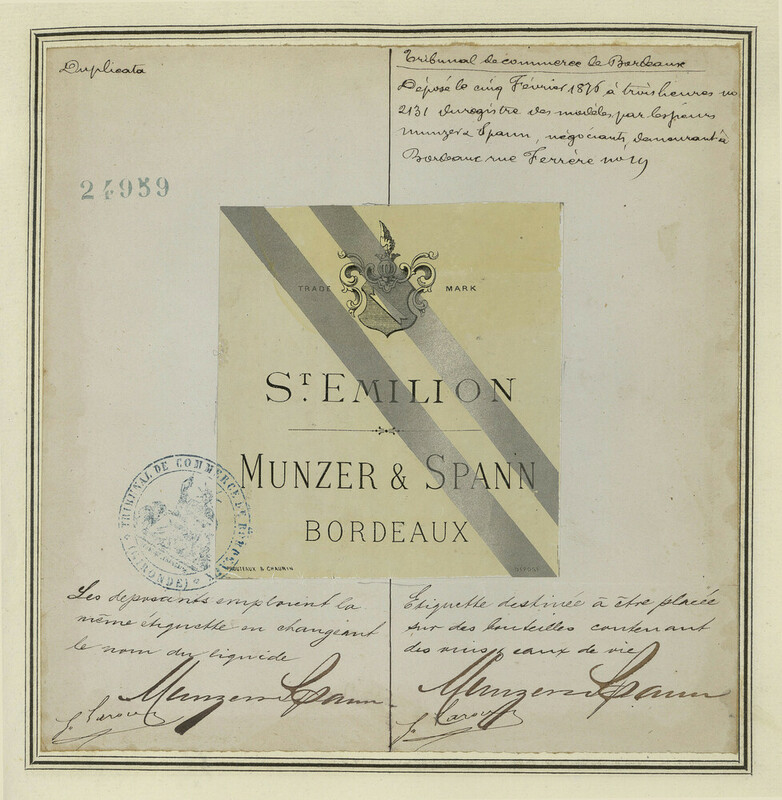 Duplicata
Tribunal de commerce de Bordeaux
Déposé le cinq Février 1876 à trois heures no
2131 du registre des modèles par les sieurs
Munzer & Spann, négociants, demeurant à
Bordeaux rue Ferrère no 19
24959
TRADE MARK
ST. EMILION
MUNZER & SPANN
BORDEAUX
& CHAUMIN
DÉPOSÉ
TRIBUNAL DE COMMERCE DE BORDEAUX
(GIRONDE)
Les deposants emploient la
même étiquette en changeant
le nom du liquide
Etiquette destinée à être placée
sur des bouteilles contenant
des vins & eaux de vie
Munzer & Spann
Munzer & Spann